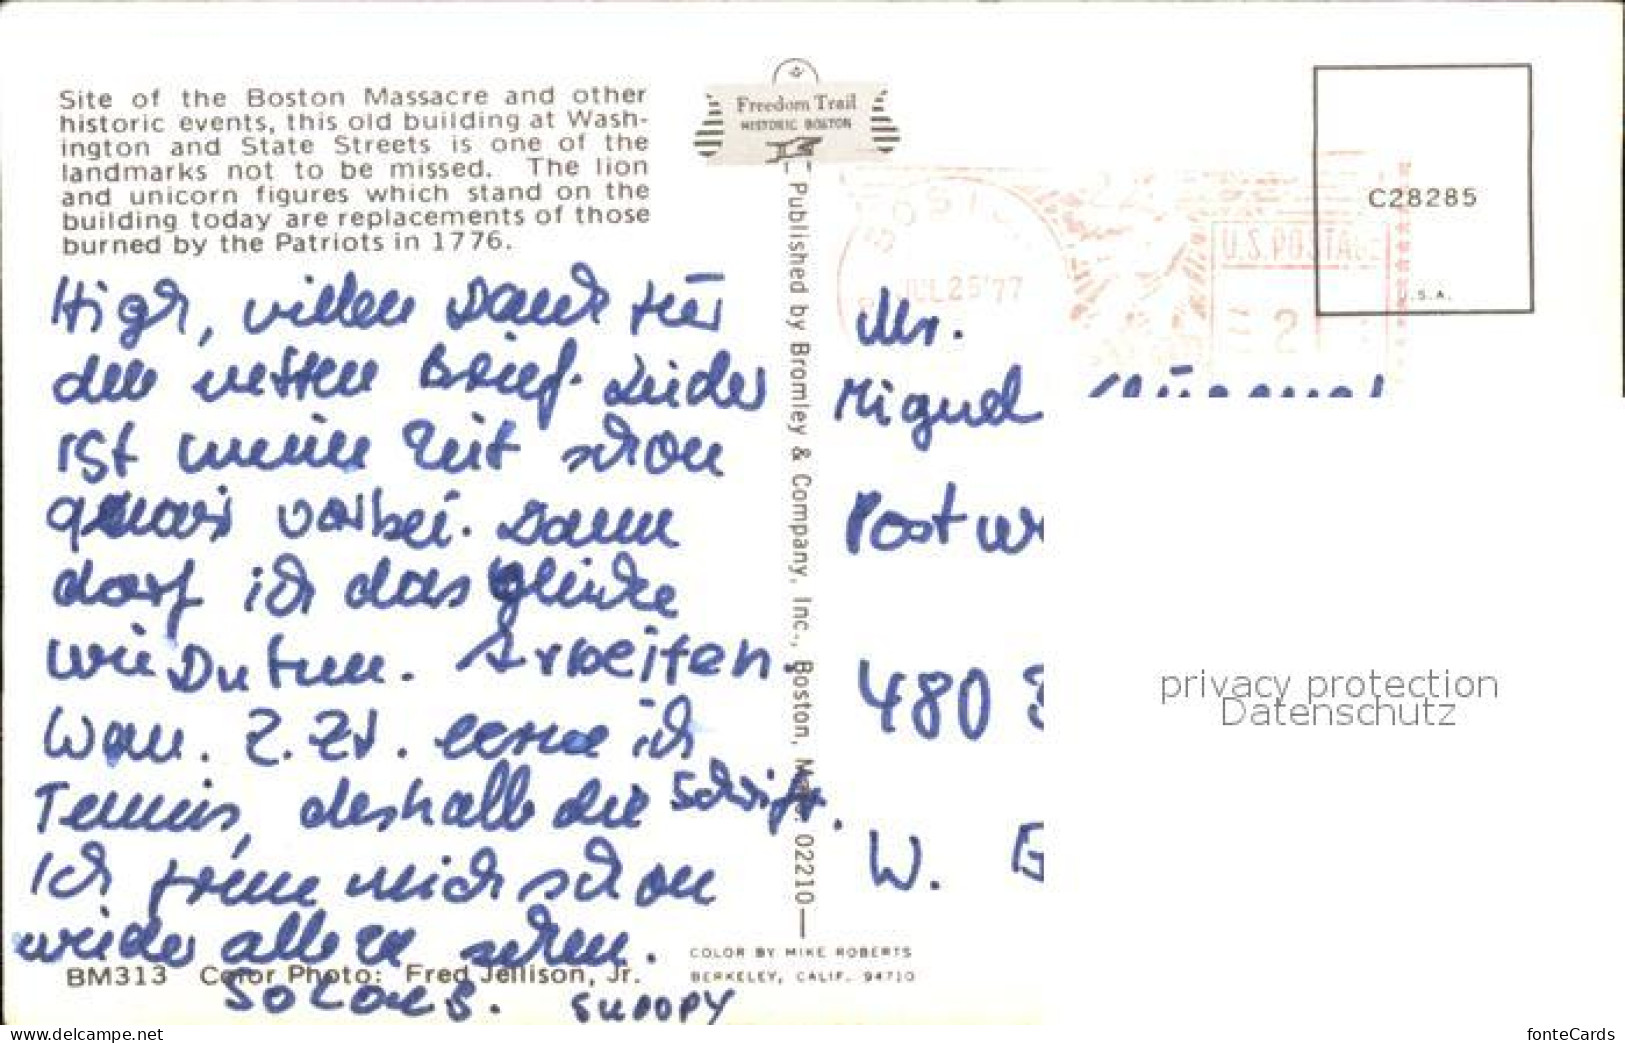 Site of the Boston Massacre and other
historic events, this old building at Wash-
ington and State Streets is one of the
landmarks not to be missed. The lion
and unicorn figures which stand on the
building today are replacements of those
burned by the Patriots in 1776.
High, vielen Dank für
den netten Brief. Leider
ist meine Zeit schon
quasi vorbei. Dann
darf ich das gleiche
wie Du tun. Arbeiten.
Wau. Z. Zt. lerne ich
Tennis, deshalb die Schrift.
Ich freue mich schon
wieder alle zu sehen.
BM313 Color Photo: Fred Jellison, Jr.
SNOOPY
Freedom Trail
HISTORIC BOSTON
Published by Bromley & Company, Inc., Boston, Mass. 02210
COLOR BY MIKE ROBERTS
BERKELEY, CALIF. 94710
BOSTON
JUL 25 '77
U.S. POSTAGE
C28285
U.S.A.
Mr.
Miguel
Postw
480
W.
privacy protection
Datenschutz
www.delcampe.net
fonteCards